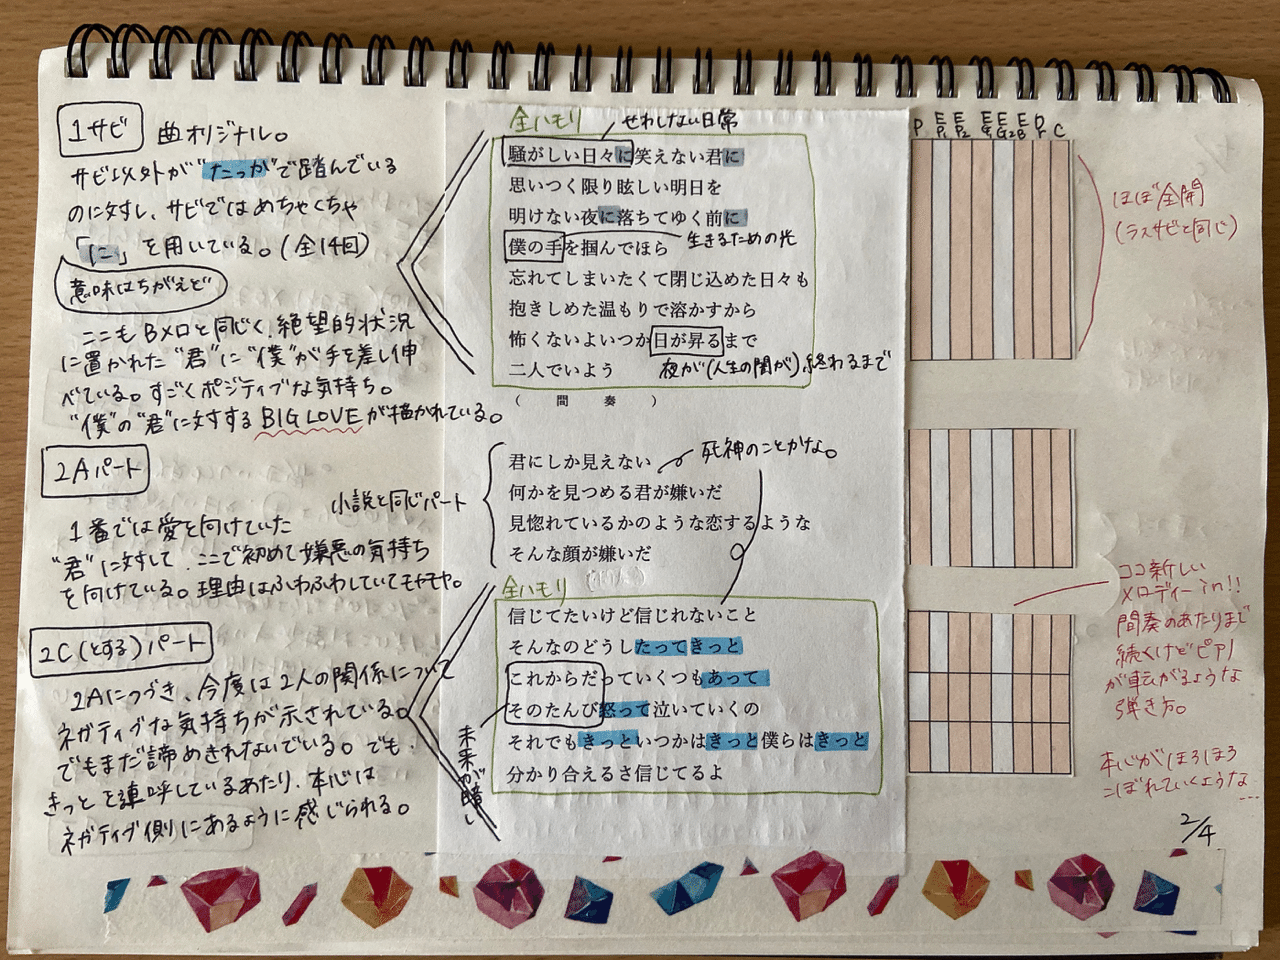 1サビ 曲オリジナル。
サビ以外が"たっが"で踏んでいる
のに対し、サビではめちゃくちゃ
「に」を用いている。(全14回)
意味はちがえど
ここもBメロと同じく、絶望的状況
に置かれた"君"に"僕"が手を差し伸
べている。すごくポジティブな気持ち。
"僕"の"君"に対するBIG LOVEが描かれている。
2Aパート
小説と同じパート
1番では愛を向けていた
"君"に対して、ここで初めて嫌悪の気持ち
を向けている。理由はふわふわしていてモヤモヤ。
2C(とする)パート
2Aにつづき、今度は2人の関係について
ネガティブな気持ちが示されている。
でもまだ諦めきれないでいる。でも、
きっとを連呼しているあたり、本心は
ネガティブ側にあるように感じられる。
全ハモリ
せわしない日常
騒がしい日々に笑えない君に
思いつく限り眩しい明日を
明けない夜に落ちてゆく前に
僕の手を掴んでほら
生きるための光
忘れてしまいたくて閉じ込めた日々も
抱きしめた温もりで溶かすから
怖くないよいつか日が昇るまで
二人でいよう
夜が(人生の闇が)終わるまで
(間奏)
死神のことかな。
君にしか見えない
何かを見つめる君が嫌いだ
見惚れているかのような恋するような
そんな顔が嫌いだ
全ハモリ
信じてたいけど信じれないこと
そんなのどうしたってきっと
これからだっていくつもあって
そのたんび怒って泣いていくの
それでもきっといつかはきっと僕らはきっと
分かり合えるさ信じてるよ
未来が暗い
P EP1 EP2 EG1 EG2 EB Dr C
ほぼ全開
(ラスサビと同じ)
ココ新しい
メロディーin!!
間奏のあたりまで
続くけどピアノ
が転がるような
弾き方。
本心がほろほろ
こぼれていくような…
2/4